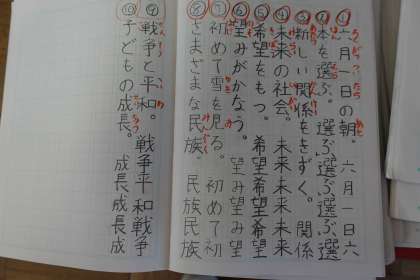 ① 六月一日の朝。 六月一日六
② 本を選ぶ。 選ぶ選ぶ選
③ 新しい関係をきずく。 関係
④ 未来の社会。 未来未来未来
⑤ 希望をもつ。 希望希望
⑥ 望みがかなう。 望み望み望
⑦ 初めて雪を見る。 初めて初
⑧ さまざまな民族 民族民族
⑨ 戦争と平和。 戦争平和戦争
⑩ 子どもの成長。 成長成長成